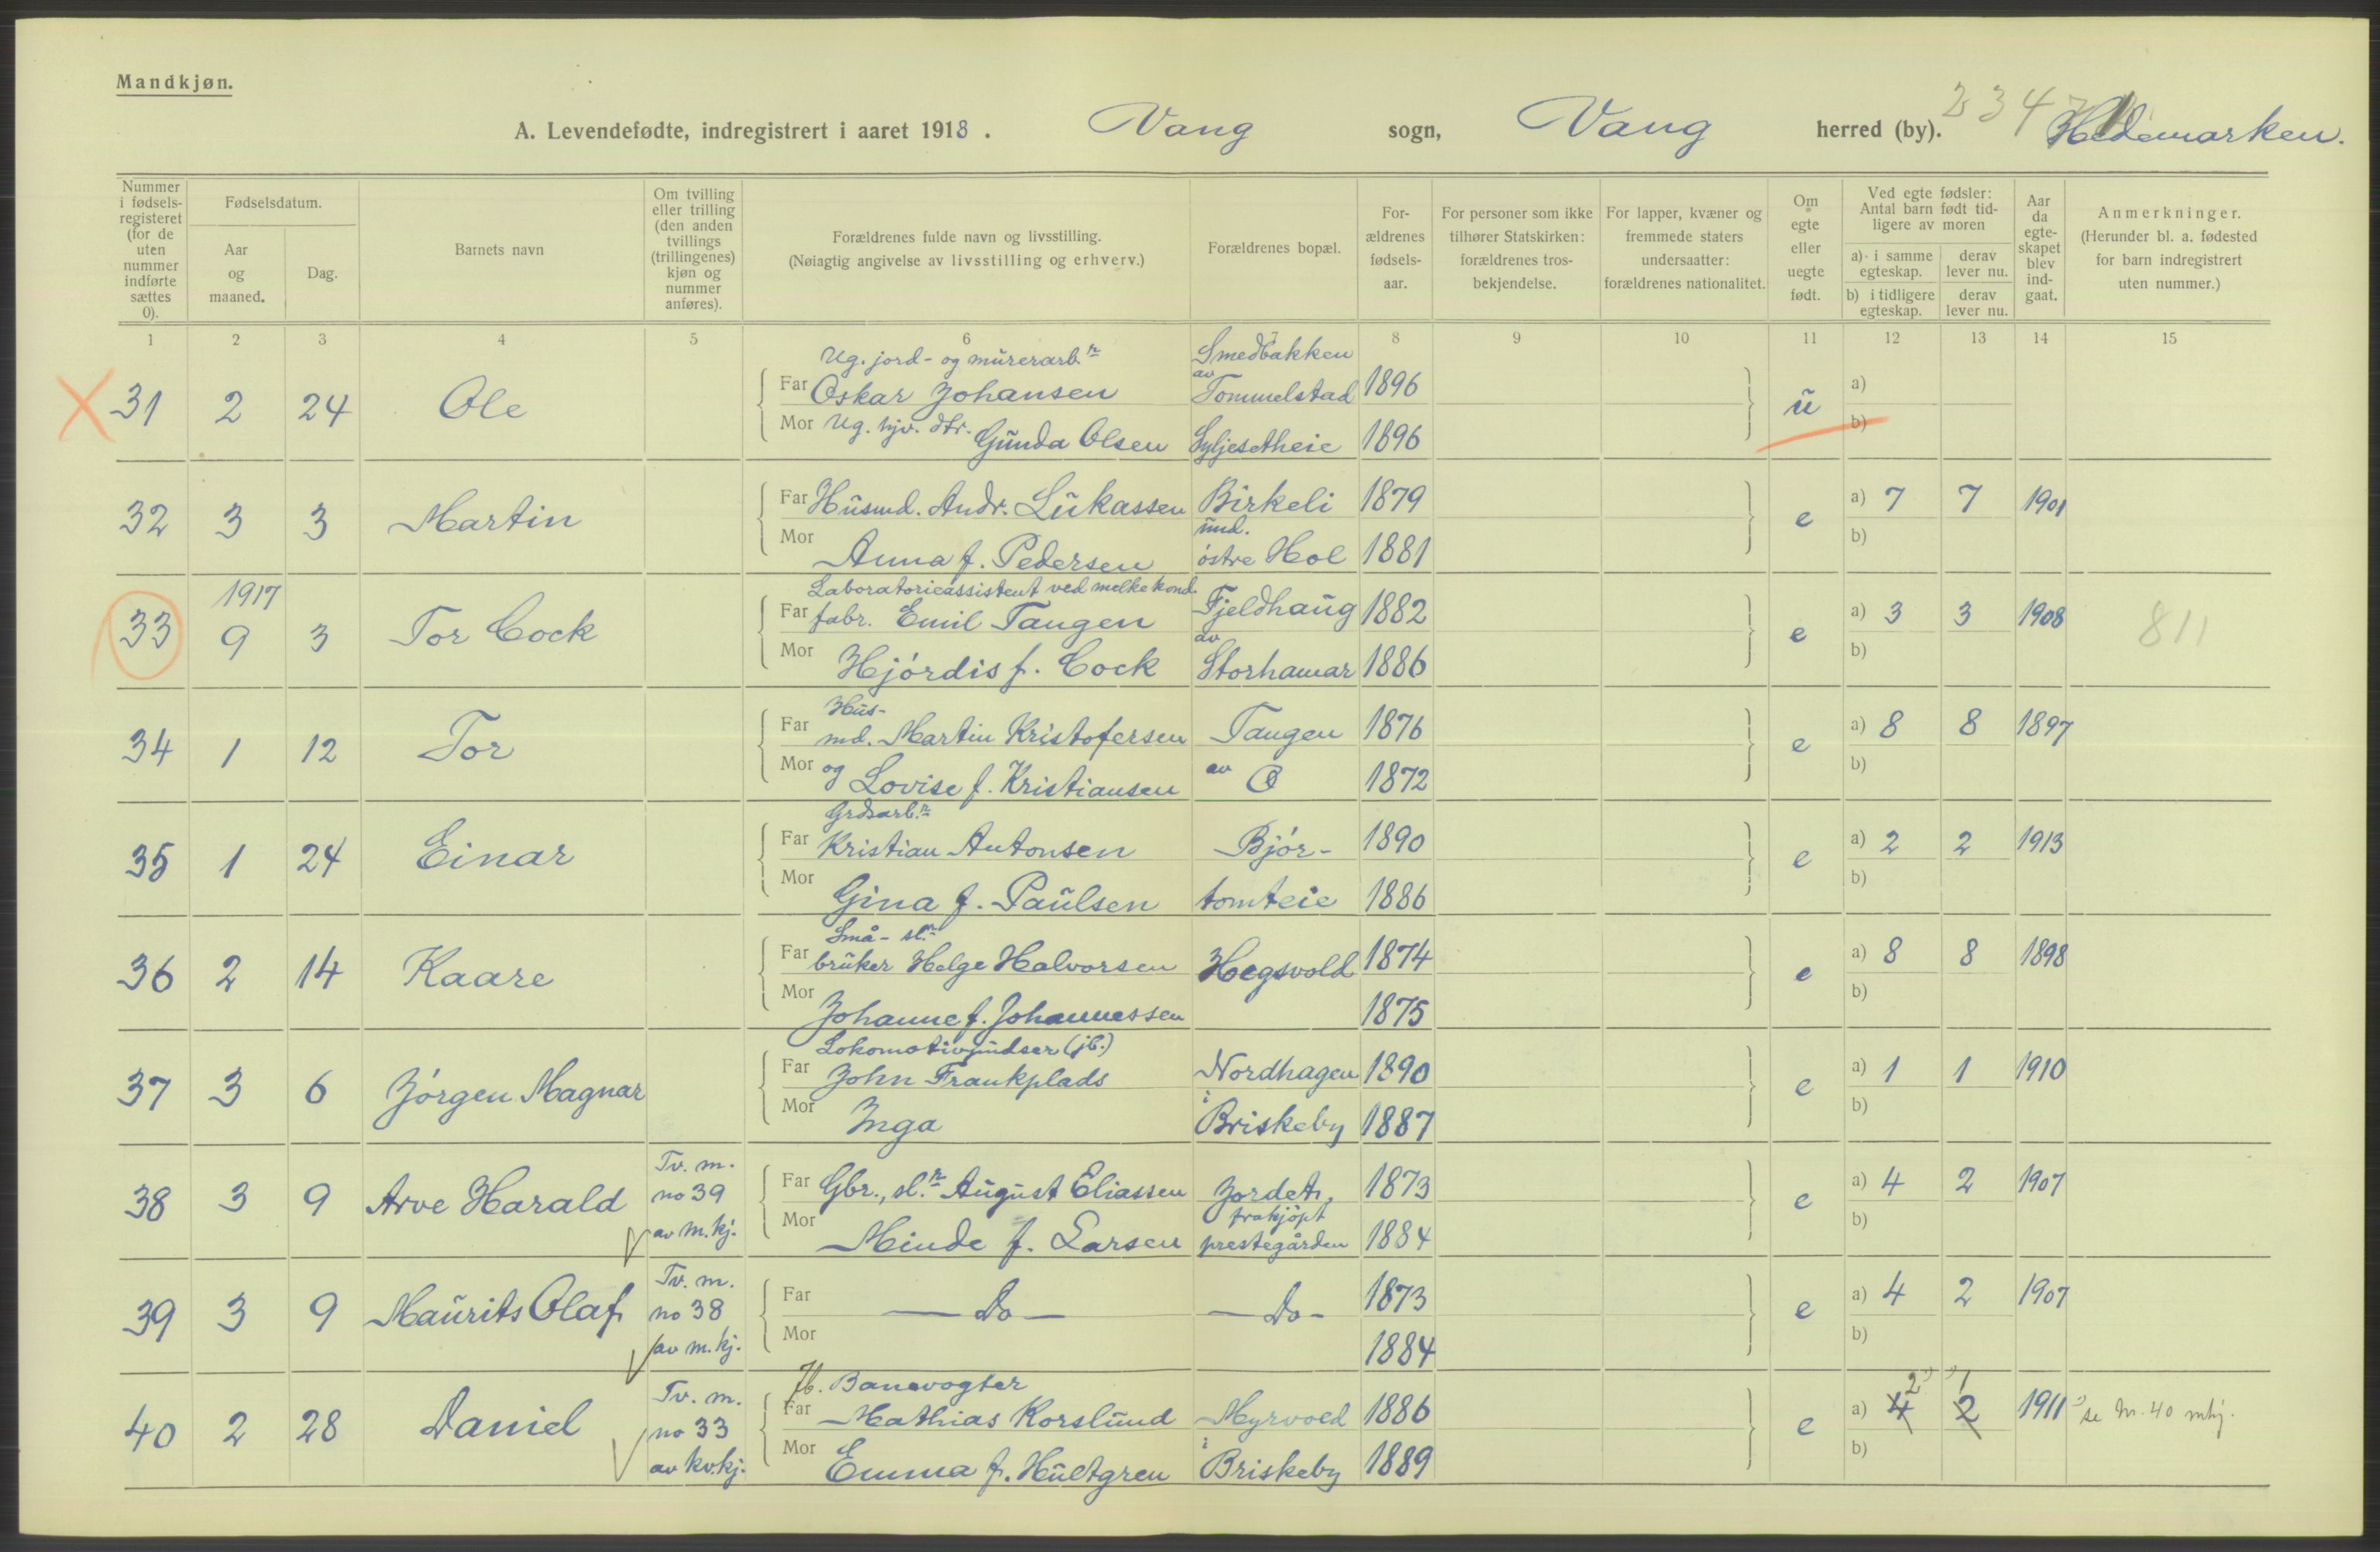 Mandkjøn.
A. Levendefødte, indregistrert i aaret 1918. Vang sogn, Vang herred (by). 234 Hedemarken.
Nummer i fødsels-registeret (for de uten nummer indførte sættes 0).
Fødselsdatum.
Aar og maaned.
Dag.
Barnets navn
Om tvilling eller trilling (den anden tvillings (trillingenes) kjøn og nummer anføres).
Forældrenes fulde navn og livsstilling.
(Nøiagtig angivelse av livsstilling og erhverv.)
Forældrenes bopæl.
For-ældrenes fødsels-aar.
For personer som ikke tilhører Statskirken: forældrenes tros-bekjendelse.
For lapper, kvæner og fremmede staters undersaatter: forældrenes nationalitet.
Om egte eller uegte født.
Ved egte fødsler: Antal barn født tid-ligere av moren
a) i samme egteskap.
derav lever nu.
b) i tidligere egteskap.
derav lever nu.
Aar da egte-skapet blev ind-gaat.
Anmerkninger.
(Herunder bl. a. fødested for barn indregistrert uten nummer.)
1 2 3 4 5 6 7 8 9 10 11 12 13 14 15
Ug. jord- og murerarb.r Smedbakken
31 2 24 Ole Far Oskar Johansen av Tommelstad 1896 u a)
Mor Ug. hjv. dtr. Gunda Olsen Lyljesetheie 1896 b)
32 3 3 Martin Far Husmd. Andr. Lukassen Birkeli 1879 e a) 7 7 1901
und.
Mor Anna f. Pedersen østre Hol 1881 b)
1917 Laboratorieassistent ved melkekond.
33 9 3 Tor Cock Far fabr. Emil Tangen Fjeldhaug 1882 e a) 3 3 1908 811
Mor Hjørdis f. Cock av Storhamar 1886 b)
Hus-
34 1 12 Tor Far md. Martin Kristofersen Tangen 1876 e a) 8 8 1897
Mor og Lovise f. Kristiansen av Ø 1872 b)
Grdsarb.r
35 1 24 Einar Far Kristian Antonsen Bjør- 1890 e a) 2 2 1913
Mor Gina f. Paulsen tomteie 1886 b)
Små- sl.r
36 2 14 Kaare Far bruker Helge Halvorsen Hegsvold 1874 e a) 8 8 1898
Mor Johanne f. Johannessen 1875 b)
Lokomotivpudser (jb.)
37 3 6 Jørgen Magnar Far John Frankplads Nordhagen 1890 e a) 1 1 1910
Mor Inga i Briskeby 1887 b)
Tv. m.
38 3 9 Arve Harald no 39 Far Gbr., sl.r August Eliassen Jordet, 1873 e a) 4 2 1907
frakjøpt
av m. kj. Mor Minde f. Larsen prestegården 1884 b)
Tv. m.
39 3 9 Maurits Olaf no 38 Far — Do — — Do - 1873 e a) 4 2 1907
av m. kj. Mor 1884 b)
Tv. m. Jb. Banevogter 2 1
40 2 28 Daniel no 33 Far Mathias Korslund Myrvold 1886 e a) 4 2 1911 se nr. 40 mkj.
av kv.kj. Mor Emma f. Hultgren i Briskeby 1889 b)